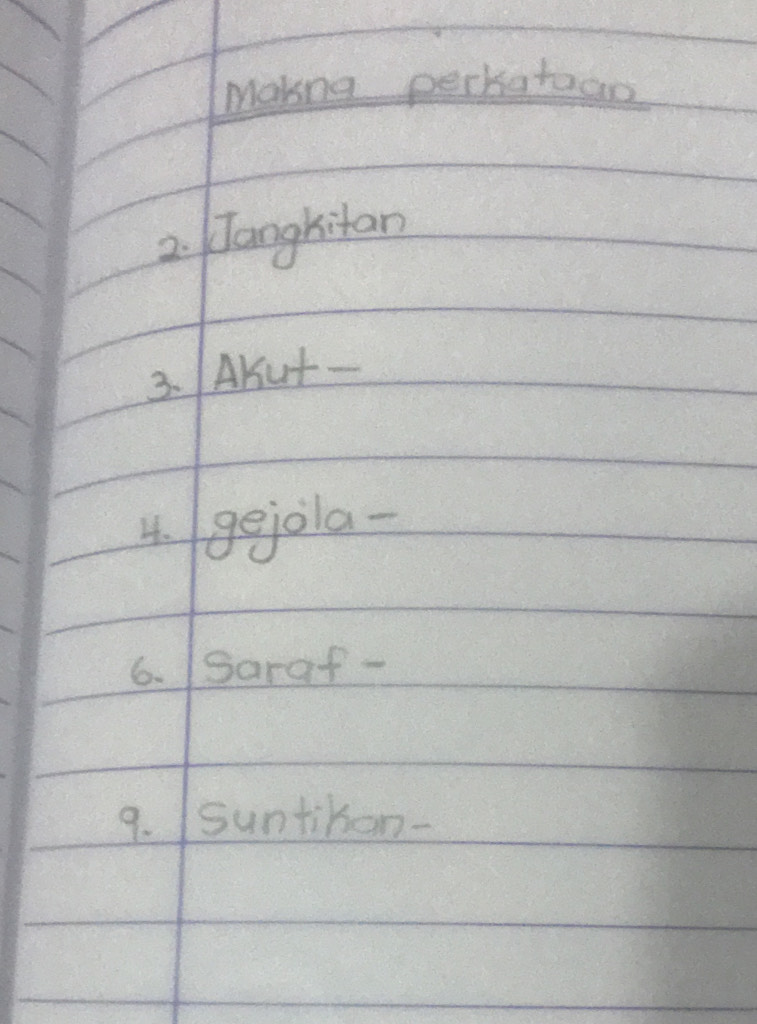 Makna perkataan
2. Jangkitan
3. Akut -
4. gejala -
6. Saraf -
9. Suntikan -